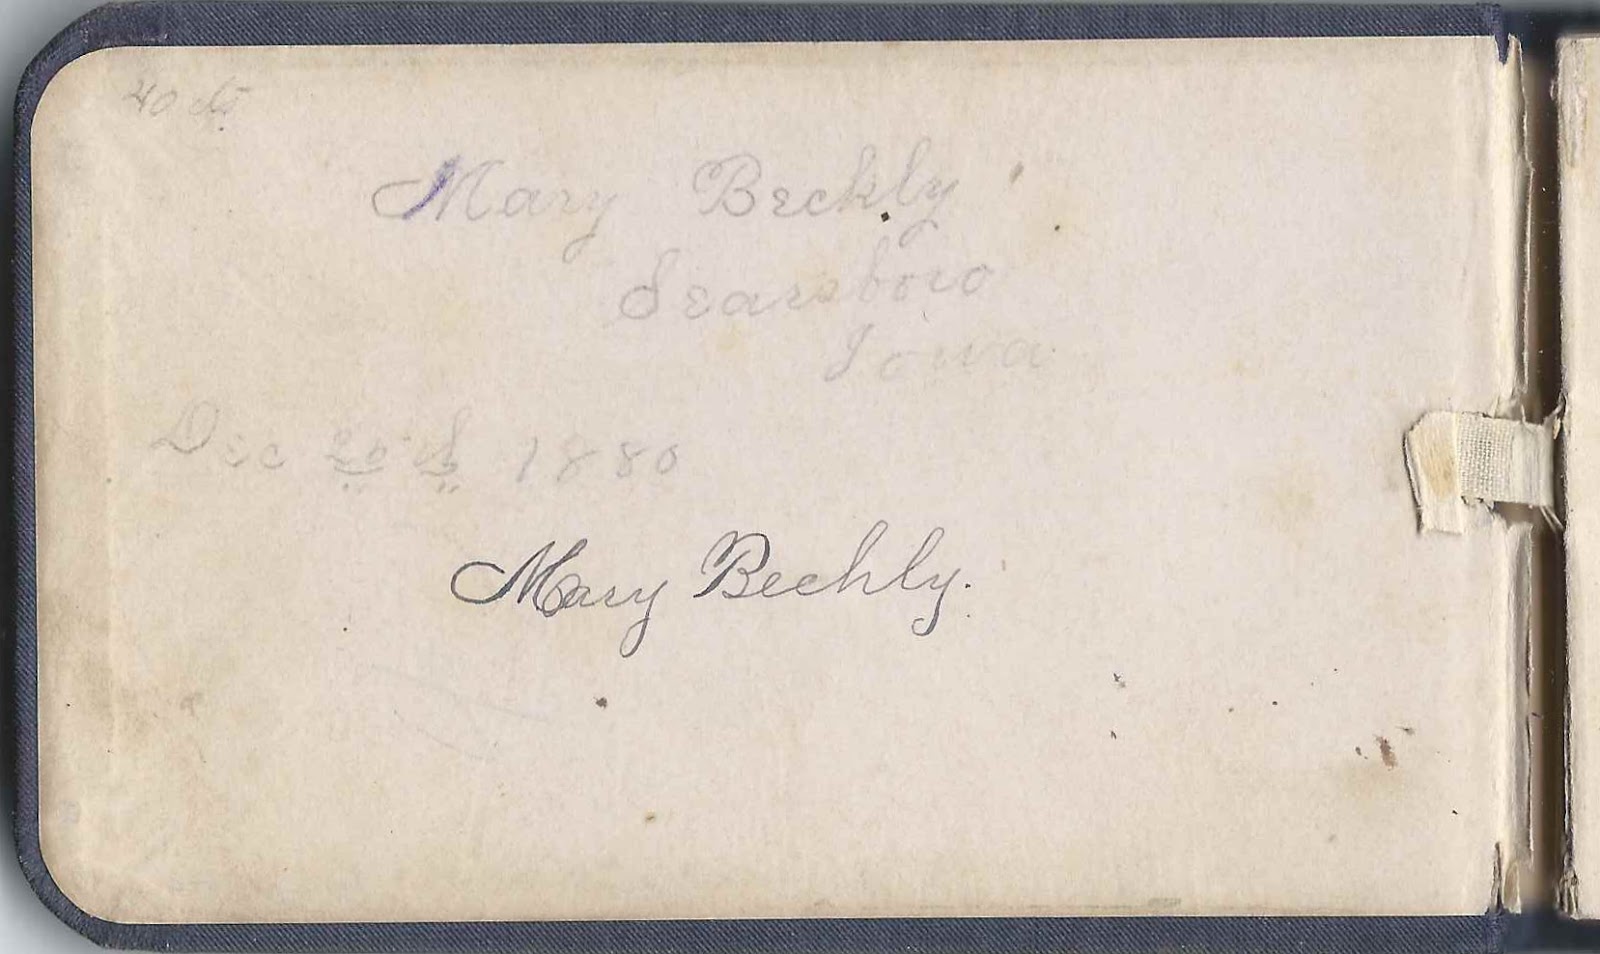 40 cts
Mary Bechly
Searsboro
Iowa
Dec 25th 1880
Mary Bechly.